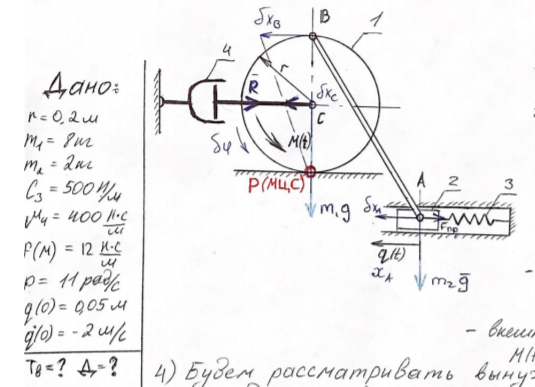 Дано:
r = 0,2 м
m₁ = 8 кг
m₂ = 2 кг
C₃ = 500 Н/м
μ₄ = 400 Н·с/м
f(M) = 12 Н·с/м
p = 11 рад/с
q(0) = 0,05 м
q̇(0) = -2 м/с
Tв = ? Д = ?
δx_B
B
1
4
r
R̄
δx_C
C
M(t)
δφ
P(МЦС)
m₁g
A
2
3
δx_A
F_пр
q(t)
x_A
m₂ḡ
- внеш
M(t
4) Будем рассматривать выну